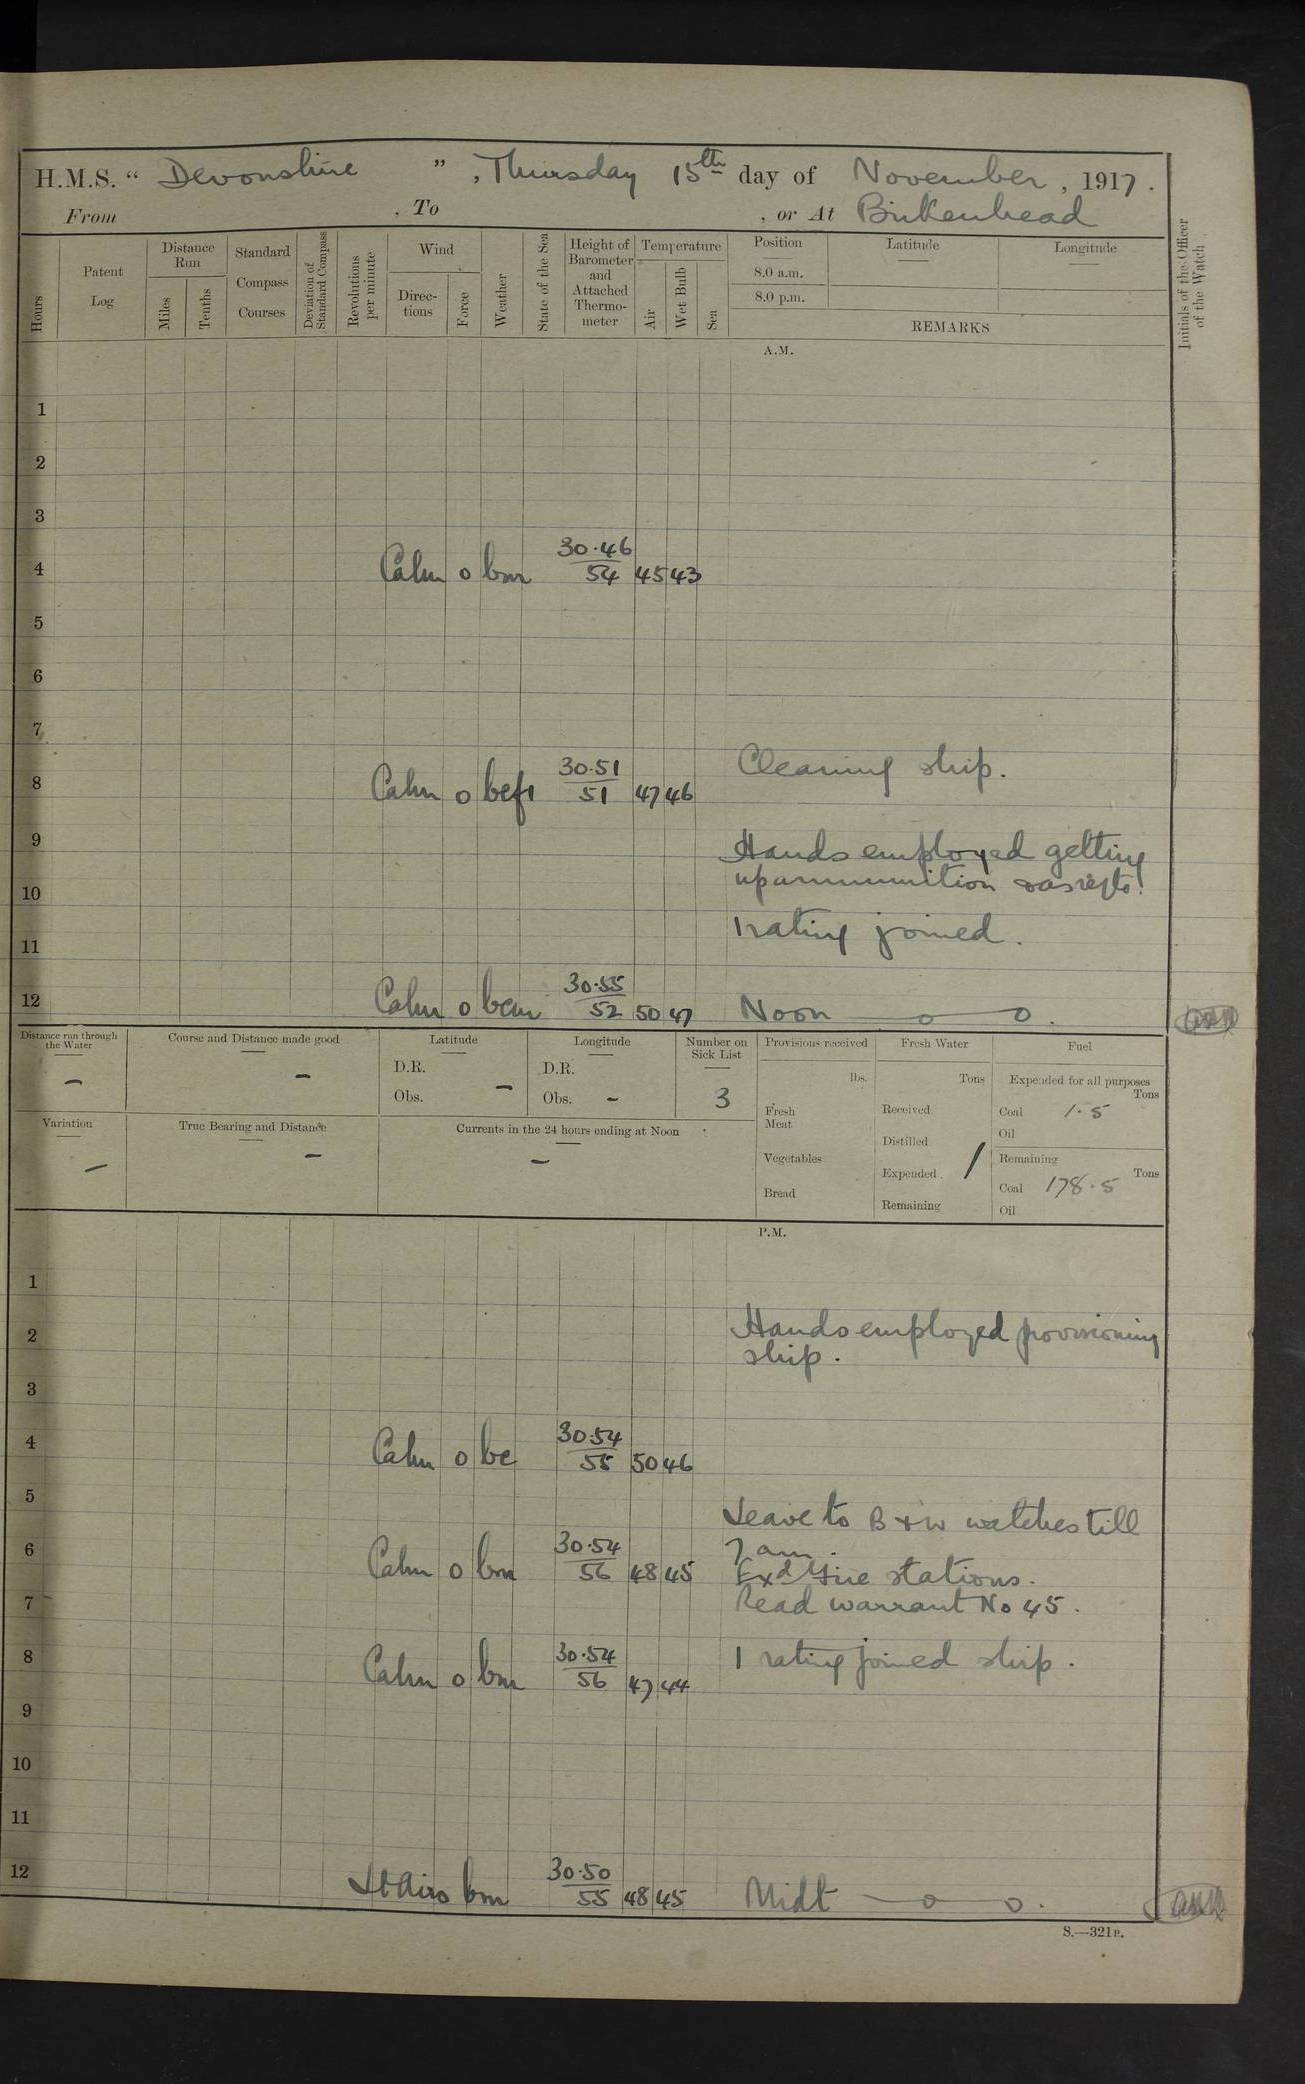 H.M.S. “ Devonshire ” , Thursday 15th day of November , 1917 .
From , To , or At Birkenhead
Hours
Patent Log
Distance Run
Miles
Tenths
Standard Compass Courses
Deviation of Standard Compass
Revolutions per minute
Wind
Directions
Force
Weather
State of the Sea
Height of Barometer and Attached Thermometer
Temperature
Air
Wet Bulb
Sea
Position
8.0 a.m.
8.0 p.m.
Latitude
Longitude
REMARKS
Initials of the Officer of the Watch.
A.M.
1
2
3
4 Calm o bm 30.46 54 45 43
5
6
7
Cleaning ship.
8 Calm o 30.51 51 47 46
9
Hands employed getting
10 up ammunition
11 1 rating joined.
12 Calm o bcm 30.55 52 50 47 Noon o o.
Distance run through the Water
–
Course and Distance made good
–
Latitude
D.R.
Obs. –
Longitude
D.R.
Obs. –
Number on Sick List
3
Provisions received
lbs.
Fresh Meat
Vegetables
Bread
Fresh Water
Tons
Received
Distilled
Expended /
Remaining
Fuel
Expended for all purposes
Tons
Coal 1.5
Oil
Remaining
Tons
Coal 178.5
Oil
Variation
–
True Bearing and Distance
–
Currents in the 24 hours ending at Noon
–
P.M.
1
2 Hands employed provisioning
ship.
3
4 Calm o bc 30.54 55 50 46
5
Leave to B & W watches till
6 Calm o bm 30.54 56 48 45 7 am.
Exd Fire stations.
7 Read warrant No 45.
8 Calm o bm 30.54 56 47 44 1 rating joined ship.
9
10
11
12 Lt Airs bm 30.50 55 48 45 Midt o o.
S.—321B.